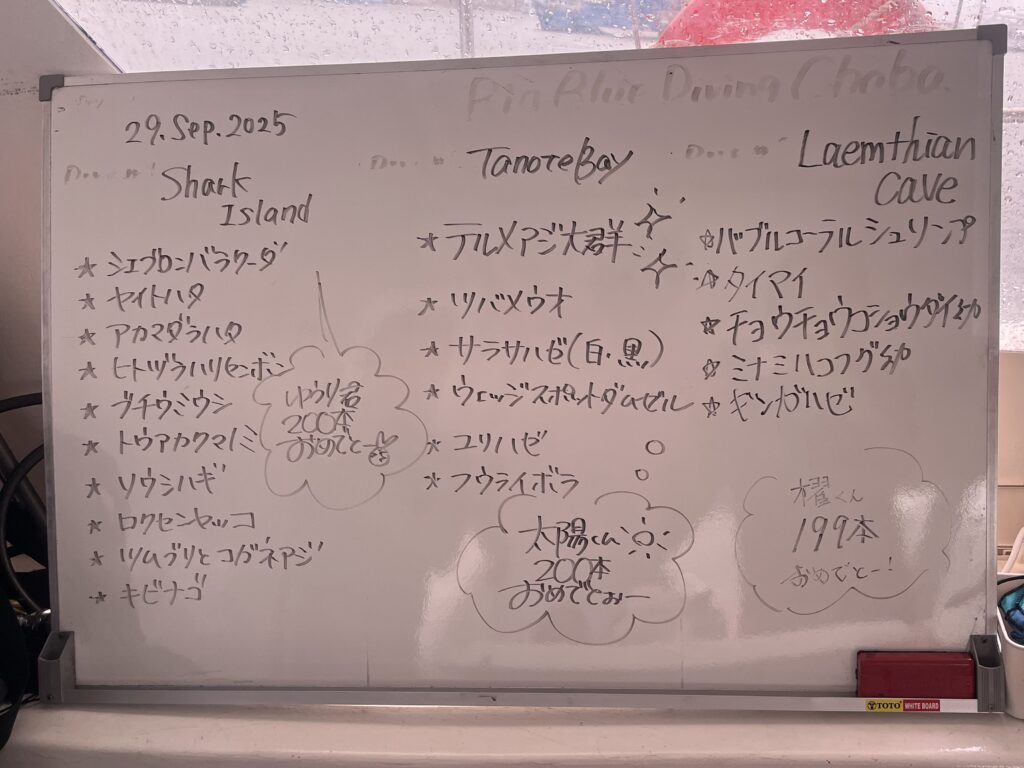 Pin Blue Diving Chaba
29.Sep.2025
Shark
Island
★ シェブロンバラクーダ
★ ヤイトハタ
★ アカマダラハタ
★ ヒトヅラハリセンボン
★ ブチウミウシ
★ トウアカクマノミ
★ ソウシハギ
★ ロクセンヤッコ
★ ツムブリとコガネアジ
★ キビナゴ
ゆうり君
200本
おめでとー
Tanote Bay
★ テルメアジ大群
★ ツバメウオ
★ サラサハゼ(白・黒)
★ ウェッジスポットダムゼル
★ ユリハゼ
★ フウライボラ
太陽くん
200本
おめでとぉー
Laemthian
Cave
☆バブルコーラルシュリンプ
☆タイマイ
☆チョウチョウコショウダイ幼
☆ミナミハコフグ幼
☆ギンガハゼ
櫂くん
199本
おめでとー!
TOTO WHITE BOARD